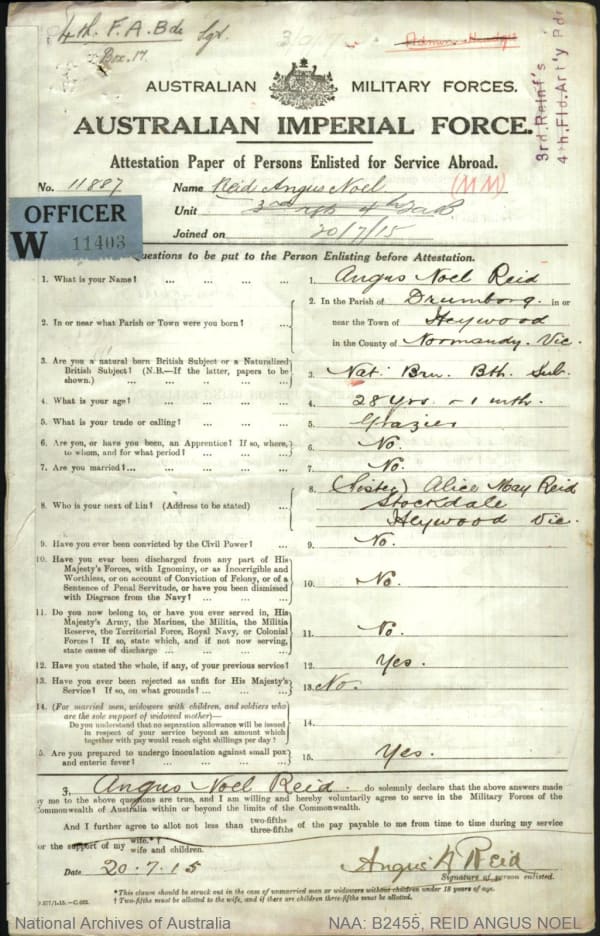 4th. F. A. Bde Sgt.
Box. 17.
AUSTRALIAN MILITARY FORCES.
AUSTRALIAN IMPERIAL FORCE.
3rd. Reinf's
4th. Fld. Art'y Bde
Attestation Paper of Persons Enlisted for Service Abroad.
No. 11887 Name Reid Angus Noel (MM)
Unit 4th FAB
Joined on 20/7/15
OFFICER
W 11403
Questions to be put to the Person Enlisting before Attestation.
1. What is your Name? ... ... ... ... 1. Angus Noel Reid
2. In or near what Parish or Town were you born? ... 2. In the Parish of Drumborg. in or
near the Town of Heywood
in the County of Normandy. Vic.
3. Are you a natural born British Subject or a Naturalized
British Subject? (N.B.—If the latter, papers to be
shown.) ... ... ... ... 3. Nat. Brn. Bth. Sub.
4. What is your age? ... ... ... ... 4. 28 yrs. - 1 mth.
5. What is your trade or calling? ... ... ... 5. Grazier
6. Are you, or have you been, an Apprentice? If so, where,
to whom, and for what period? ... ... ... 6. No.
7. Are you married?... ... ... ... 7. No.
8. Who is your next of kin? (Address to be stated) ... 8 (Sister) Alice May Reid
Stockdale
Heywood Vic.
9. Have you ever been convicted by the Civil Power? ... 9. No.
10. Have you ever been discharged from any part of His
Majesty's Forces, with Ignominy, or as Incorrigible and
Worthless, or on account of Conviction of Felony, or of a
Sentence of Penal Servitude, or have you been dismissed
with Disgrace from the Navy? ... ... ... 10. No.
11. Do you now belong to, or have you ever served in, His
Majesty's Army, the Marines, the Militia, the Militia
Reserve, the Territorial Force, Royal Navy, or Colonial
Forces? If so, state which, and if not now serving,
state cause of discharge ... ... ... 11. No.
12. Have you stated the whole, if any, of your previous service? 12. Yes.
13. Have you ever been rejected as unfit for His Majesty's
Service? If so, on what grounds? ... ... ... 13. No.
14. (For married men, widowers with children, and soldiers who
are the sole support of widowed mother)—
Do you understand that no separation allowance will be issued
in respect of your service beyond an amount which
together with pay would reach eight shillings per day? ... 14.
5. Are you prepared to undergo inoculation against small pox
and enteric fever? ... ... ... ... 15. Yes.
I, Angus Noel Reid. do solemnly declare that the above answers made
by me to the above questions are true, and I am willing and hereby voluntarily agree to serve in the Military Forces of the
Commonwealth of Australia within or beyond the limits of the Commonwealth.
And I further agree to allot not less than two-fifths three-fifths of the pay payable to me from time to time during my service
or the support of my wife.*† wife and children.
Date 20.7.15 Angus N Reid
Signature of person enlisted.
*This clause should be struck out in the case of unmarried men or widowers without children under 18 years of age.
† Two-fifths must be allotted to the wife, and if there are children three-fifths must be allotted.
National Archives of Australia NAA: B2455, REID ANGUS NOEL